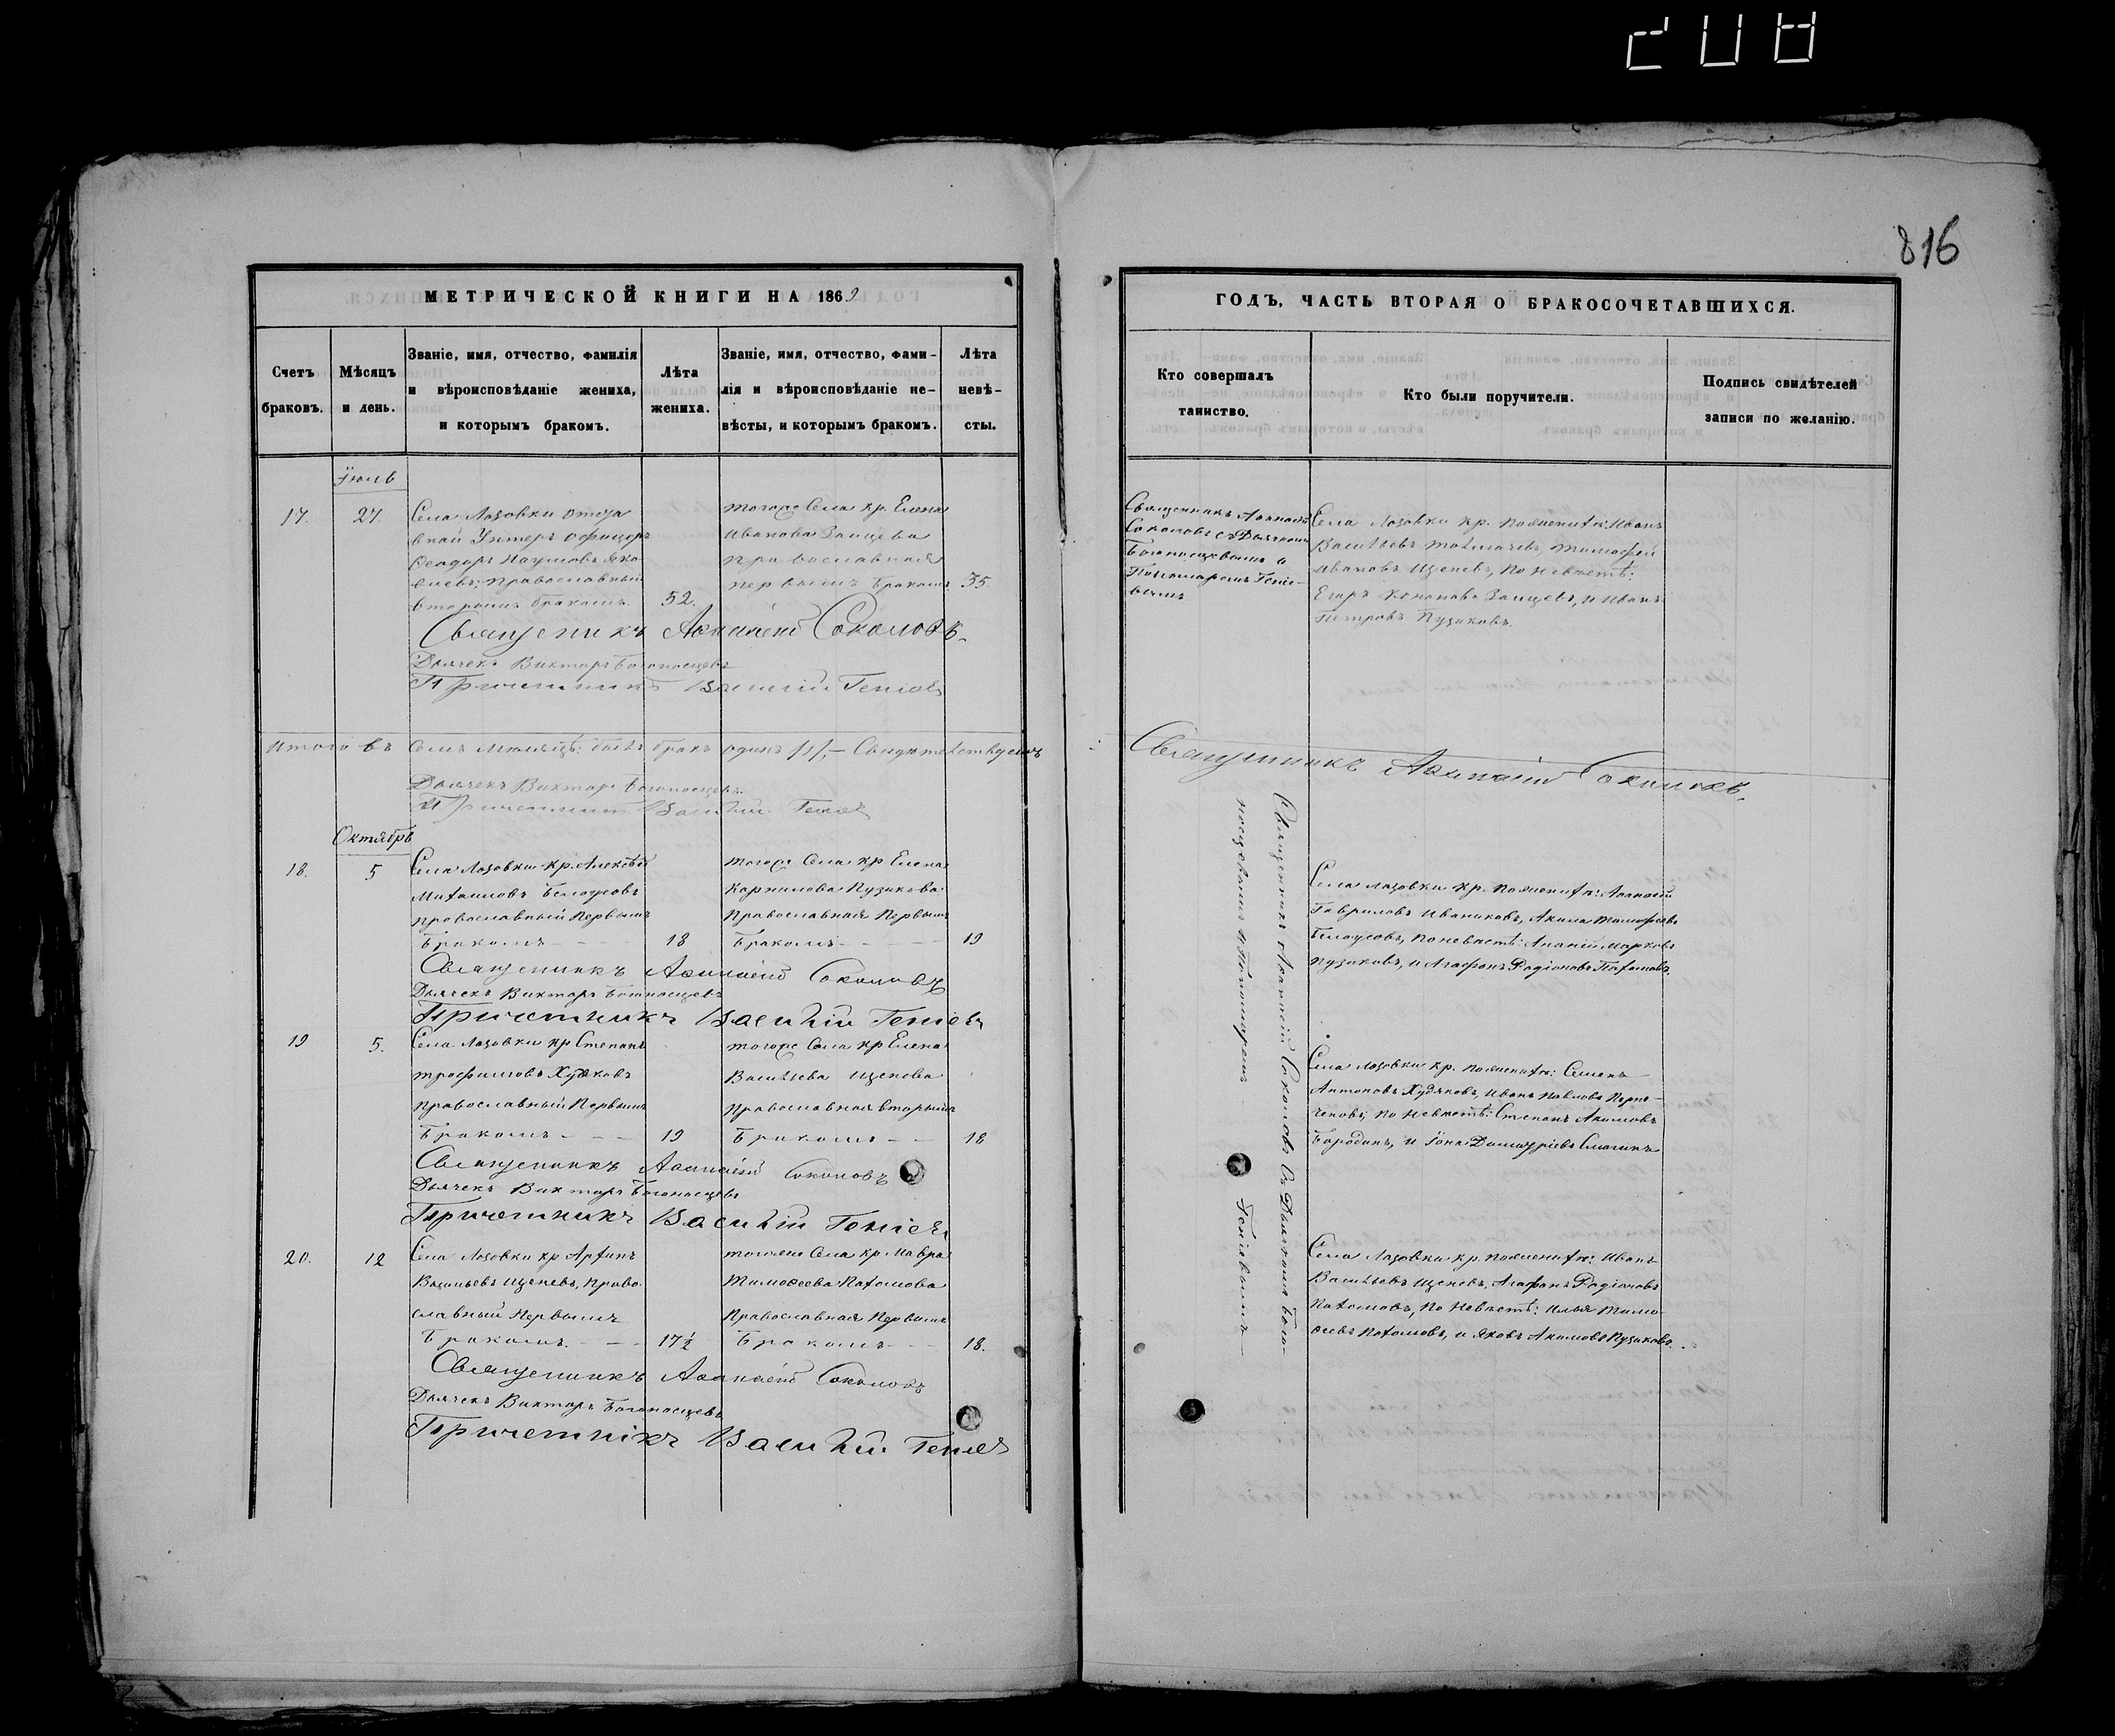 208
816
МЕТРИЧЕСКОЙ КНИГИ НА 1869
Счетъ браковъ.
Мѣсяцъ и день.
Званіе, имя, отчество, фамилія
и вѣроисповѣданіе жениха,
и которымъ бракомъ.
Лѣта жениха.
Званіе, имя, отчество, фами-
лія и вѣроисповѣданіе не-
вѣсты, и которымъ бракомъ.
Лѣта невѣ-
сты.
Іюль
17. 27.
Села Лозовки отста
вной Унтеръ Офицеръ
Ѳеодоръ Наумовъ Яко
влевъ; православный
вторымъ бракомъ. 52.
тогоже Села кр. Елена
Иванова Зайцева
православная
первымъ бракомъ 35.
Священникъ Аѳанасій Соколовъ.
Дьячекъ Викторъ Богоносцевъ
Причетникъ Василій Геніевъ
Итого въ семъ месяцѣ: былъ бракъ одинъ /1/, – Свидѣтельствуемъ
Дьячекъ Викторъ Богоносцевъ.
Причетникъ Василій Геніевъ
Октябрь
18. 5
Села Лозовки кр. Алексѣй
Михаиловъ Белоусовъ
православный Первымъ
Бракомъ - - - 18
тогоже Села кр Елена
Карпилова Пузикова
Православная Первымъ
Бракомъ - - - 19
Священникъ Аѳанасій Соколовъ
Дьячекъ Викторъ Богоносцевъ
Причетникъ Василій Геніевъ
19 5.
Села Лозовки кр Степанъ
трофимовъ Худяковъ
православный Первымъ
Бракомъ - - - 19
тогоже Села кр Елена
Васильева Щепева
Православная вторымъ
Бракомъ - - 18
Священникъ Аѳанасій Соколовъ
Дьячекъ Викторъ Богоносцевъ
Причетникъ Василій Геніевъ
20. 12
Села Лозовки кр
Васильевъ Щепевъ, Право
славный Первымъ
Бракомъ. - - 17½
тогоже Села кр Мавра
Тимоѳеева Пахомова
Православная Первымъ
Бракомъ - - 18.
Священникъ Аѳанасій Соколовъ
Дьячекъ Викторъ Богоносцевъ
Причетнікъ Василій Геніевъ
ГОДЪ, ЧАСТЬ ВТОРАЯ О БРАКОСОЧЕТАВШИХСЯ.
Кто совершалъ
таинство.
Кто были поручители.
Подпись свидѣтелей
записи по желанію.
Священникъ Аѳанасій
Соколовъ съ Дьячкомъ
Богоносцевымъ и
Пономаремъ Геніе-
вымъ
Села Лозовки кр. по женихѣ: Иванъ
Васильевъ Толмачевъ, Тимофей
Ивановъ Щепевъ, По Невѣстѣ:
Егоръ Зайцевъ, и Иванъ
Петровъ Пузиковъ.
Священникъ Аѳанасій Соколовъ.
Священникъ Аѳанасій Соколовъ Съ Дьячкомъ Бого-
носцевымъ и Пономаремъ Геніевымъ
Села Лозовки кр. по женихѣ: Аѳанасій
Гавриловъ Иваниковъ, Акила Тимофеевъ
Белоусовъ, по невѣстѣ: Ананій Марковъ
Пузиковъ, и Агафонъ Родіоновъ Пахомовъ.
Села Лозовки кр. по женихѣ: Семенъ
Антоновъ Худяковъ, Иванъ Павловъ
По Невѣстѣ: Степанъ Акимовъ
Бородинъ, и Іона
Села Лозовки кр. по женихѣ: Иванъ
Васильевъ Щепевъ, Агафонъ Родіоновъ
Пахомовъ, По Невѣстѣ: Илья Тимо-
ѳеевъ Пахомовъ, и Яковъ Акимовъ Пузиковъ.